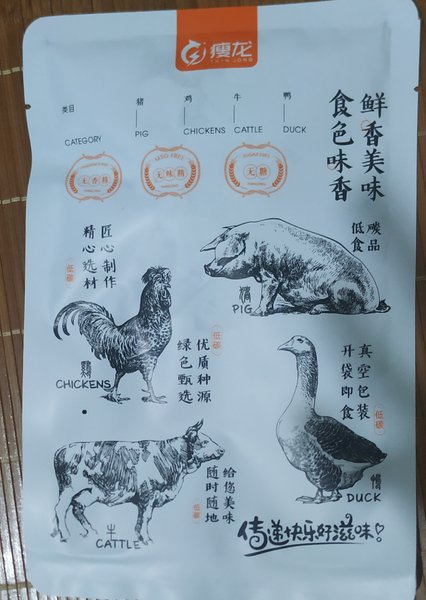 瘦龙
THIN LONG
类目 猪 鸡 牛 鸭
CATEGORY PIG CHICKENS CATTLE DUCK
鲜香美味
食色味香
无香精
MSG FREE
无味精
无糖
低碳
食品
匠心制作
精心选材
低碳
猪
PIG
优质种源
绿色甄选
低碳
鷄
CHICKENS
真空包装
开袋即食
低碳
DUCK
给您美味
随时随地
低碳
牛
CATTLE
传递快乐好滋味